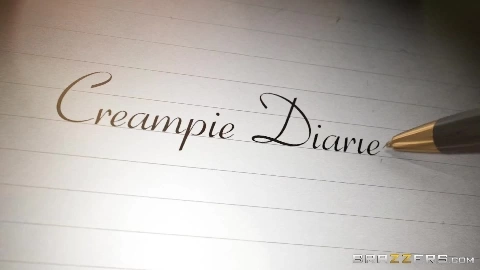 Creampie Diarie
BRAZZERS.COM